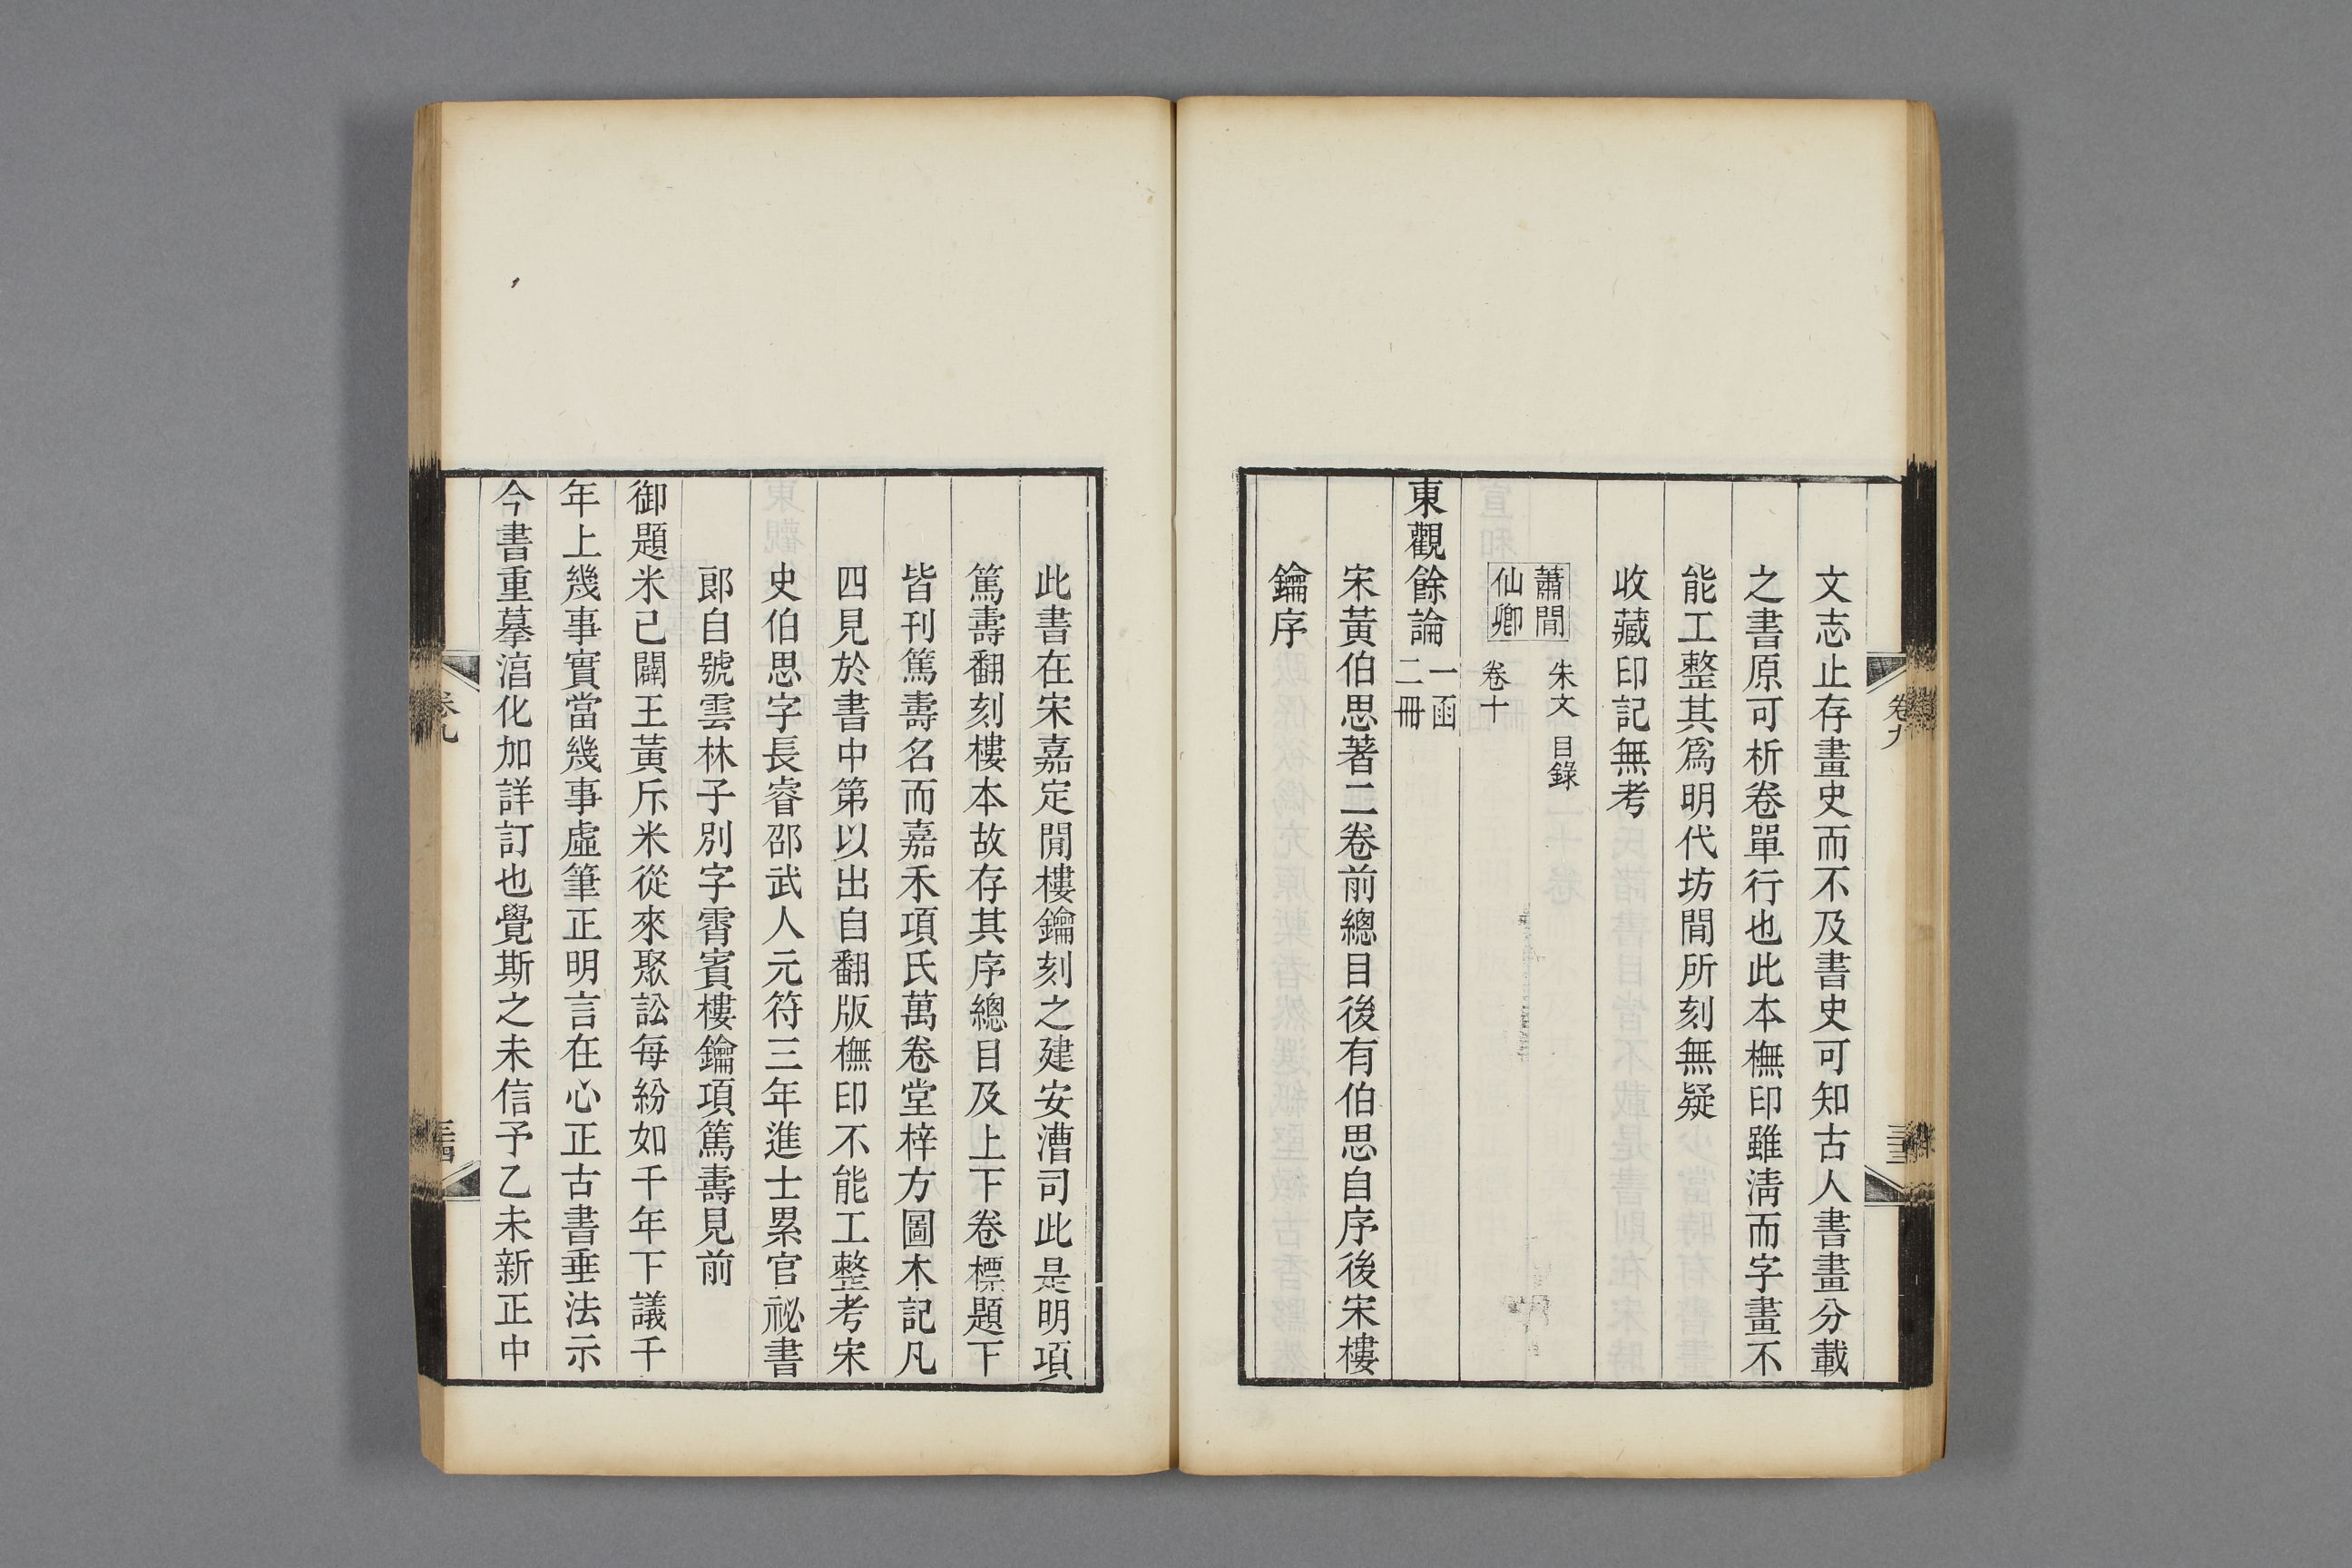 卷九
三十三
文志止存畫史而不及書史可知古人書畫分載
之書原可析卷單行也此本橅印雖淸而字畫不
能工整其爲明代坊間所刻無疑
收藏印記無考
蕭閒仙卿 朱文 目錄 卷十
東觀餘論 一函二冊
宋黃伯思著二卷前總目後有伯思自序後宋樓
鑰序
此書在宋嘉定閒樓鑰刻之建安漕司此是明項
篤壽翻刻樓本故存其序總目及上下卷標題下
皆刊篤壽名而嘉禾項氏萬卷堂梓方圖木記凡
四見於書中第以出自翻版橅印不能工整考宋
史伯思字長睿邵武人元符三年進士累官祕書
郎自號雲林子別字霄賓樓鑰項篤壽見前
御題米已闢王黃斥米從來聚訟每紛如千年下議千
年上幾事實當幾事虛筆正明言在心正古書垂法示
今書重摹淳化加詳訂也覺斯之未信予乙未新正中
卷九